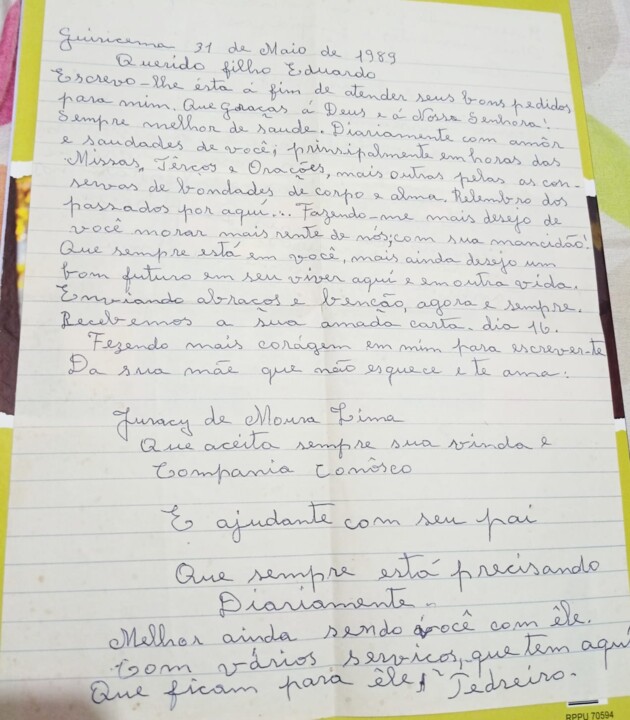 Guiricema 31 de Maio de 1989
Querido filho Eduardo
Escrevo-lhe ésta á fim de atender seus bons pedidos
para mim. Que graças á Deus e á Nossa Senhora!
Sempre melhor de saúde. Diariamente com amôr
e saudades de você; prinsipalmente em horas das
Missas, Têrços e Orações, mais outras pelas as con-
servas de bondades de corpo e alma. Relembro dos
passados por aquí... Fazendo-me mais desejo de
você morar mais rente de nós; com sua mancidão!
Que sempre está em você, mais ainda desejo um
bom futuro em seu viver aqui e em outra vida.
Enviando abraços e benção, agora e sempre.
Recebemos a sua amada carta. dia 16.
Fezendo mais corágem em mim para escrever-te
Da sua mãe que não esquece e te ama:
Juracy de Moura Lima
Que aceita sempre sua vinda e
Compania Conôsco
E ajudante com seu pai
Que sempre está precisando
Diariamente.
Melhor ainda sendo você com êle.
Com vários serviços, que tem aquí
Que ficam para êle, Pedreiro.
RPPU 70594